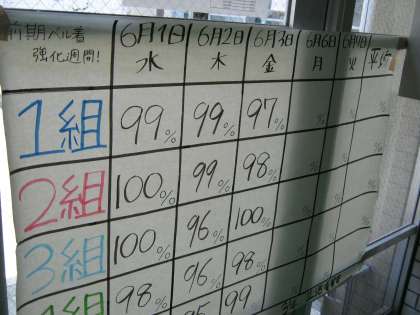 前期ベル着 6月1日 6月2日 6月3日 6月6日 6月7日 平均
強化週間! 水 木 金 月 火
1組 99% 99% 97% % % %
2組 100% 99% 98% % % %
3組 100% 96% 100% % % %
98% 96% 98%
99